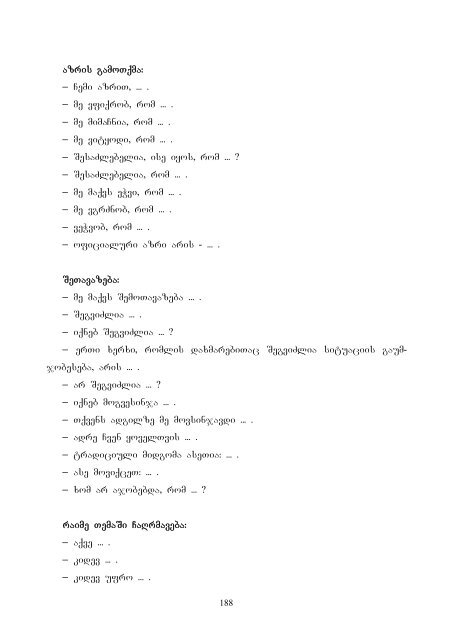 აზრის გამოთქმა:
– ჩემი აზრით, ... .
– მე ვფიქრობ, რომ ... .
– მე მიმაჩნია, რომ ... .
– მე ვიტყოდი, რომ ... .
– შესაძლებელია, ისე იყოს, რომ ... ?
– შესაძლებელია, რომ ... .
– მე მაქვს ეჭვი, რომ ... .
– მე ვგრძნობ, რომ ... .
– ვეჭვობ, რომ ... .
– ოფიციალური აზრი არის - ... .
შეთავაზება:
– მე მაქვს შემოთავაზება ... .
– შეგვიძლია ... .
– იქნებ შეგვიძლია ... ?
– ერთი ხერხი, რომლის დახმარებითაც შეგვიძლია სიტუაციის გაუმ-
ჯობესება, არის ... .
– არ შეგვიძლია ... ?
– იქნებ მოგვესინჯა ... .
– თქვენს ადგილზე მე მოვსინჯავდი ... .
– ადრე ჩვენ ყოველთვის ... .
– ტრადიციული მიდგომა ასეთია: ... .
– ასე მოვიქცეთ: ... .
– ხომ არ აჯობებდა, რომ ... ?
რაიმე თემაში ჩაღრმავება:
– აქვე ... .
– კიდევ ... .
– კიდევ უფრო ... .
188